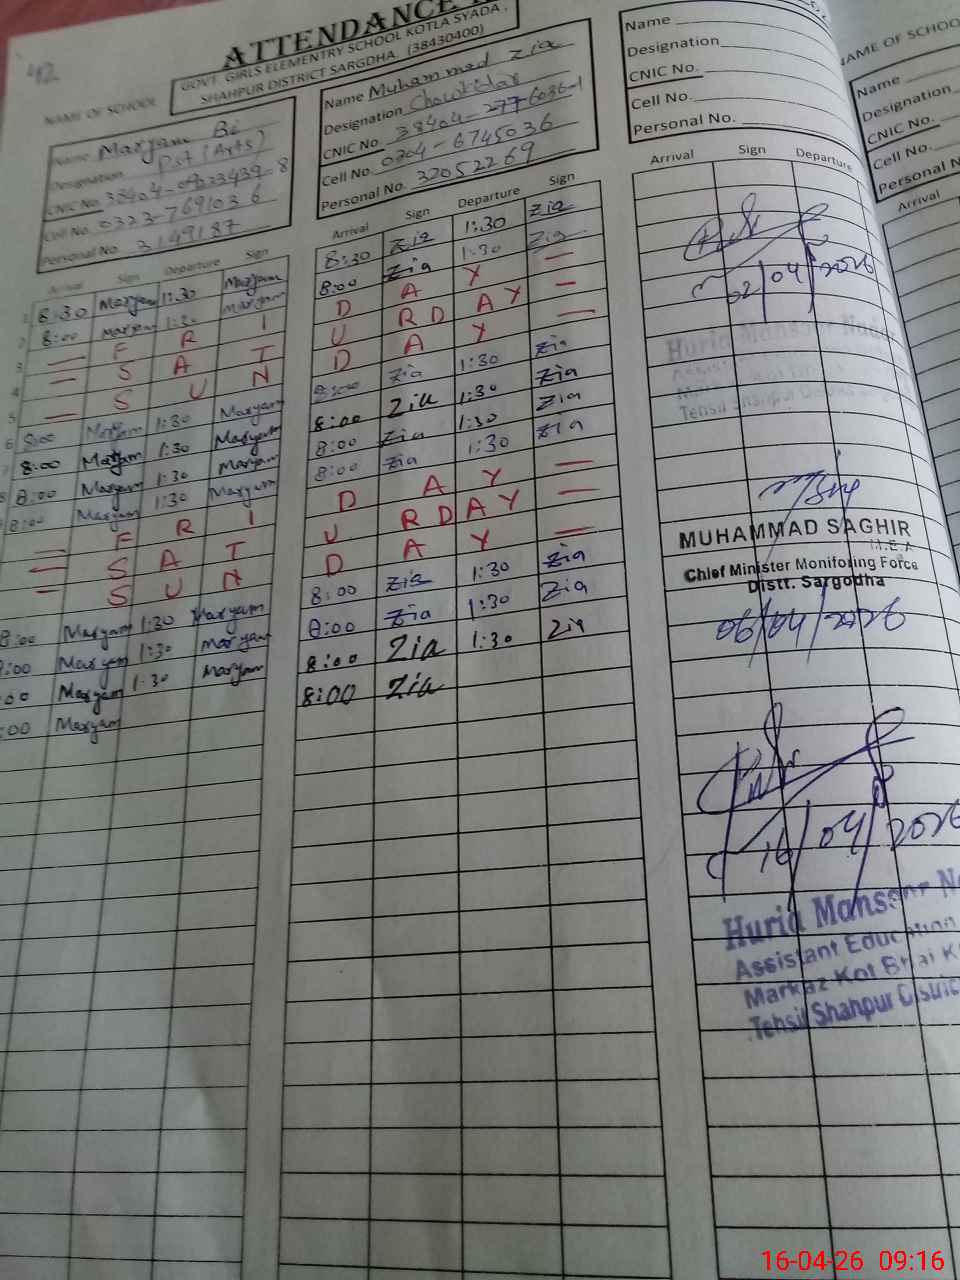 42
ATTENDANCE
NAME OF SCHOOL
GOVT. GIRLS ELEMENTRY SCHOOL KOTLA SYADA,
SHAHPUR DISTRICT SARGDHA (38430400)
Name Maryam Bi
Designation Pst (Arts)
CNIC No.
Cell No. 0323-7691036
Personal No. 3149187
Arrival Sign Departure Sign
1 8:30 Maryam 1:30 Maryam
2 8:00 Maryam 1:30 Maryam
3 — F R I
4 — S A T
5 — S U N
6 8:00 Maryam 1:30 Maryam
7 8:00 Maryam 1:30 Maryam
8 8:00 Maryam 1:30 Maryam
8:00 Maryam 1:30 Maryam
— F R I
— S A T
— S U N
8:00 Maryam 1:30 Maryam
:00 Maryam 1:30 Maryam
:00 Maryam 1:30 Maryam
:00 Maryam
Name Muhammad Zia
Designation Chowkidar
CNIC No. 38404-2776036-1
Cell No. 0304-6745036
Personal No. 32052269
Arrival Sign Departure Sign
8:30 Zia 1:30 Zia
8:00 Zia 1:30 Zia
D A Y —
U R D A Y —
D A Y —
8:00 Zia 1:30 Zia
8:00 Zia 1:30 Zia
8:00 Zia 1:30 Zia
8:00 Zia 1:30 Zia
D A Y —
U R D A Y —
D A Y —
8:00 Zia 1:30 Zia
8:00 Zia 1:30 Zia
8:00 Zia 1:30 Zia
8:00 Zia
Name
Designation
CNIC No.
Cell No.
Personal No.
Arrival Sign Departure
02/04/2026
Huria Mansoor
Tehsil Shahpur
MUHAMMAD SAGHIR
M.E.A
Chief Minister Monitoring Force
Distt. Sargodha
09/04/2026
16/04/2026
Huria Mansoor
Assistant Education
Markaz Kot Bhai K
Tehsil Shahpur District
NAME OF SCHOO
Name
Designation
CNIC No.
Cell No.
Personal N
Arrival
16-04-26 09:16